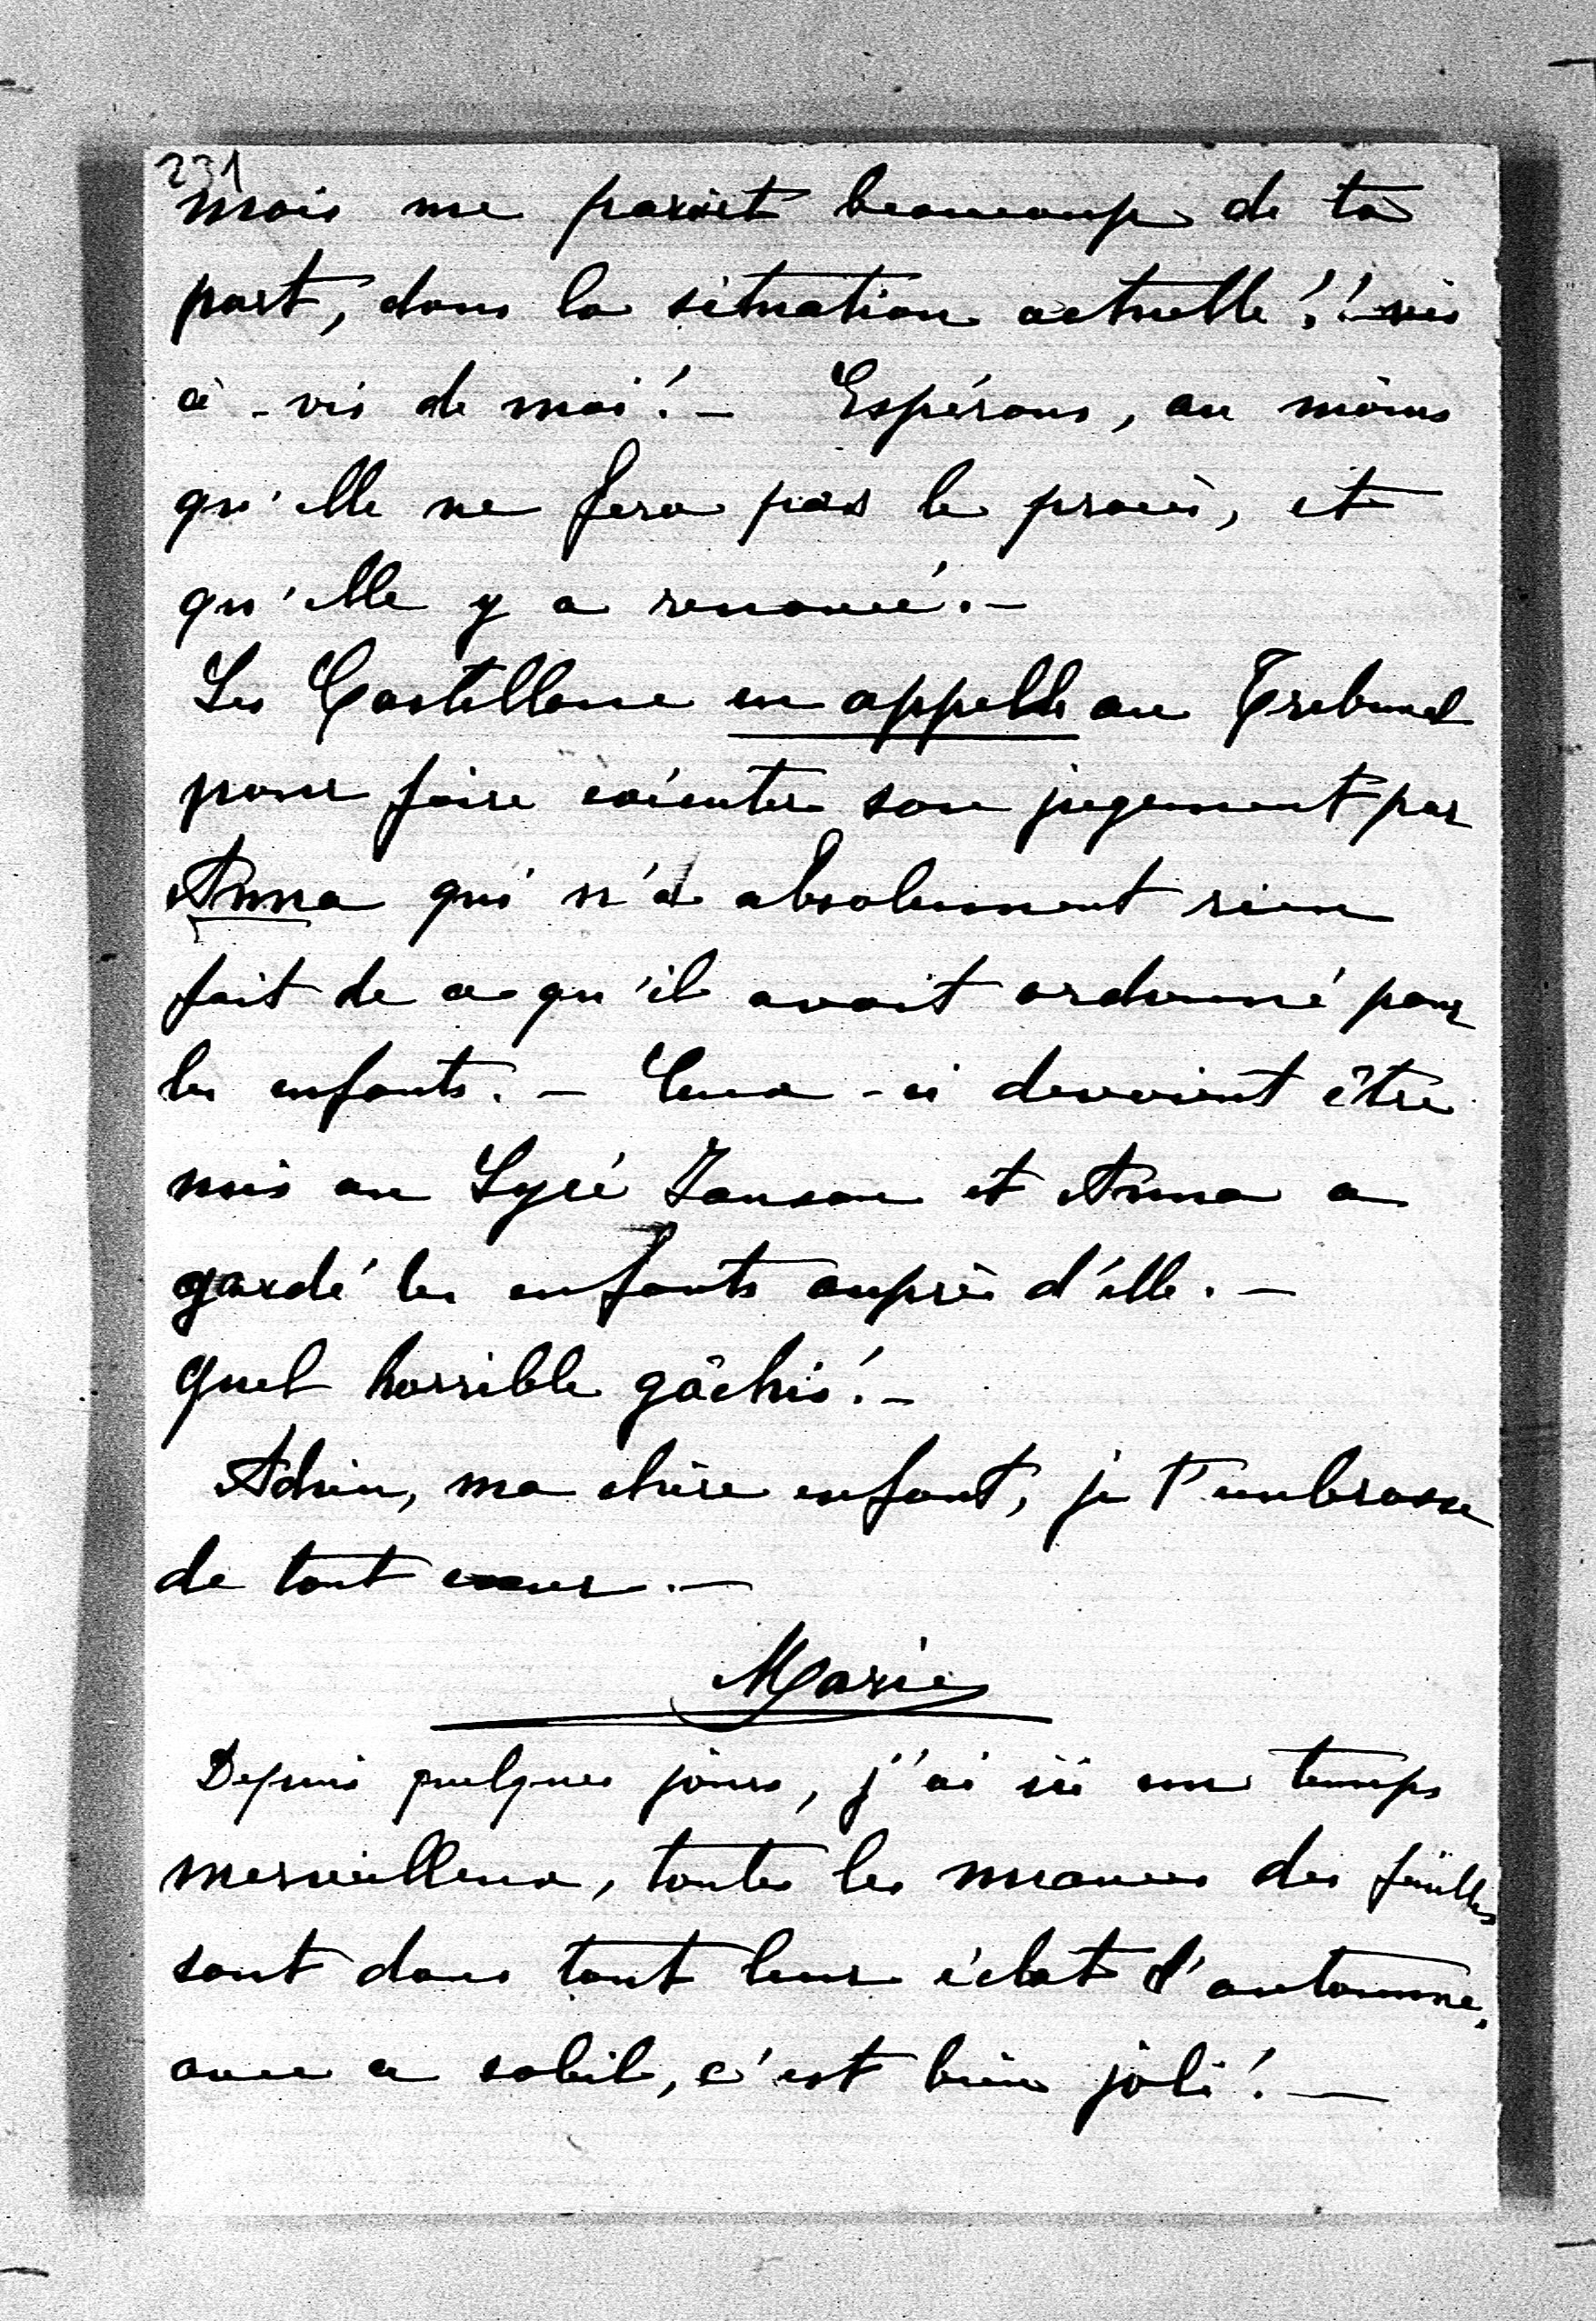 231
mois me paroît beaucoup de ta
part, dans la situation actuelle!! vis
à-vis de moi! - Espérons, au moins
qu'elle ne fera pas le procès, et
qu'elle y a renoncé. -
Les Castellane en appelle au Tribunal
pour faire exécuter son jugement par
Anna qui n'a absolument rien
fait de ce qu'il avait ordonné pour
les enfants. - Ceux-ci devaient être
mis au Lycé Janson et Anna a
gardé les enfants auprès d'elle. -
Quel horrible gâchis! -
Adieu, ma chère enfant, je t'embrasse
de tout coeur. -
Marie
Depuis quelques jours, j'ai ici un temps
merveilleux, toutes les nuances des feuilles
sont dans tout leur éclat d'automne,
avec ce soleil, c'est bien joli! -